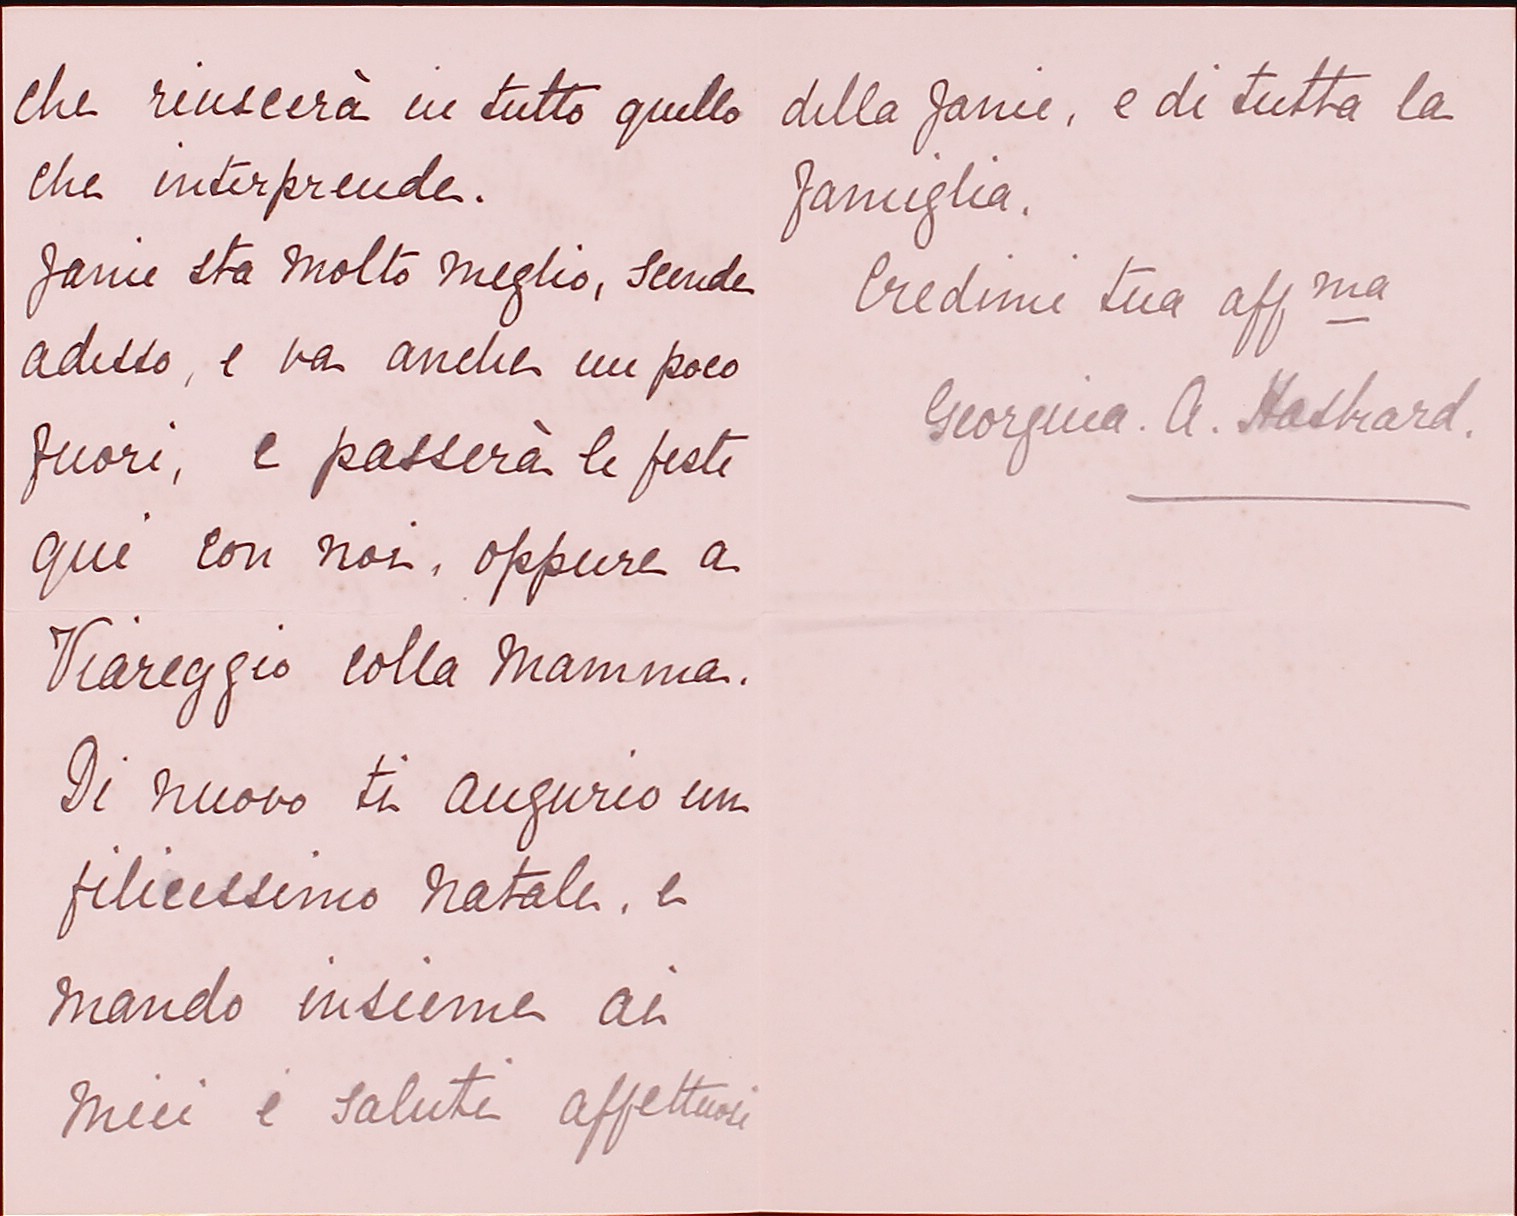 che riuscerà in tutto quello
che interprende.
Janie sta molto meglio, scende
adesso, e va anche un poco
fuori, e passerà le feste
qui con noi, oppure a
Viareggio colla Mamma.
Di nuovo ti augurio un
filicessimo Natale, e
mando insieme ai
miei i saluti affettuosi
della Janie, e di tutta la
famiglia.
Credimi tua aff ma
Georgina. A.